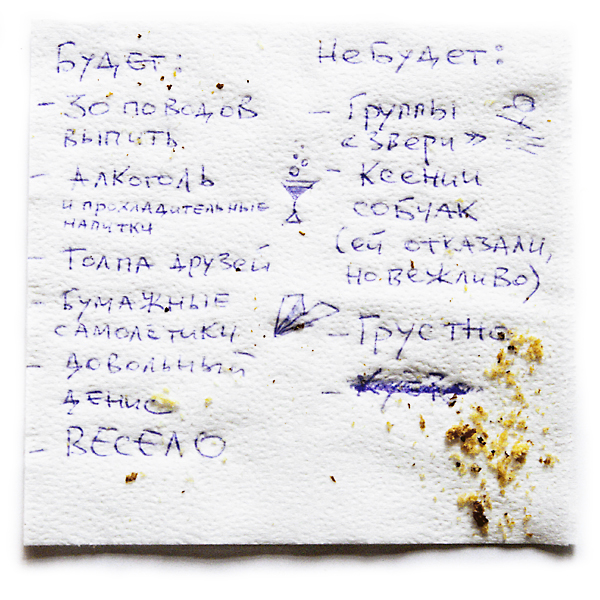 Будет:
- 30 поводов
выпить
- Алкоголь
и прохладительные
напитки
- Толпа друзей
- Бумажные
самолетики
- довольный
Денис
- ВЕСЕЛО
Не будет:
- Группы
«Звери»
- Ксении
Собчак
(ей отказали,
но вежливо)
- Грустно
-